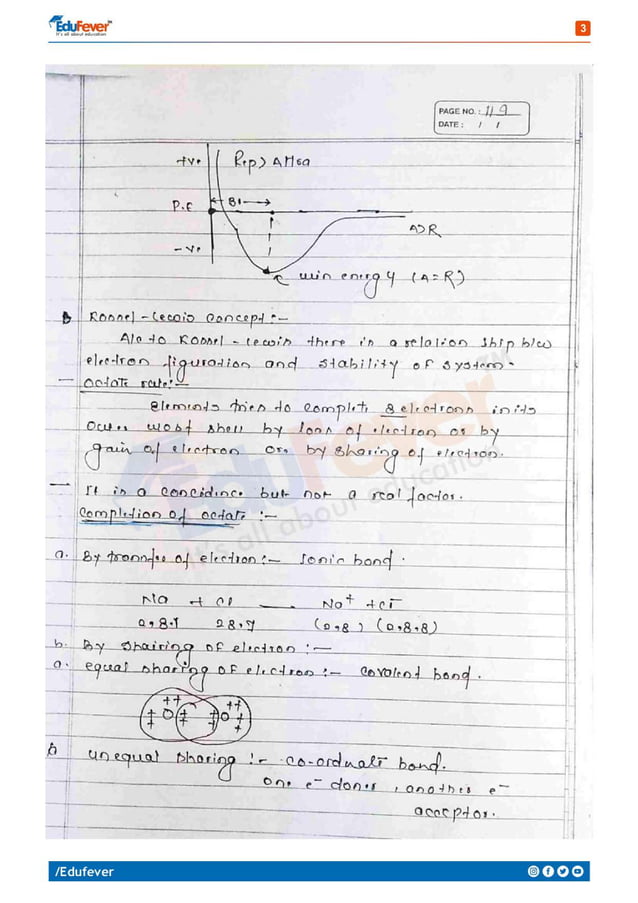 EduFever
It's all about education
3
PAGE NO.: 119
DATE: / /
+ve Rep) AHso
P.E BI
A>R
-ve
min energy (A=R)
Kossel-Lewis concept:-
A/c to Kossel-Lewis there is a relation ship b/w
electron figuration and stability of system.
— octate rule:-
Elements tries to complete 8 electrons in its
outer most shell by loss of electron or by
gain of electron or by sharing of electron.
— It is a concidince but not a real factor.
Completion of octate:-
a. By transfer of electron:- Ionic bond.
Na + Cl — Na+ + Cl-
2,8,1 2,8,7 (2,8) (2,8,8)
b. By shairing of electron:-
a. equal sharing of electron:- covalent bond.
b unequal sharing:- co-ordinate bond.
one e- donor, another e-
acceptor.
EduFever
It's all about education
/Edufever